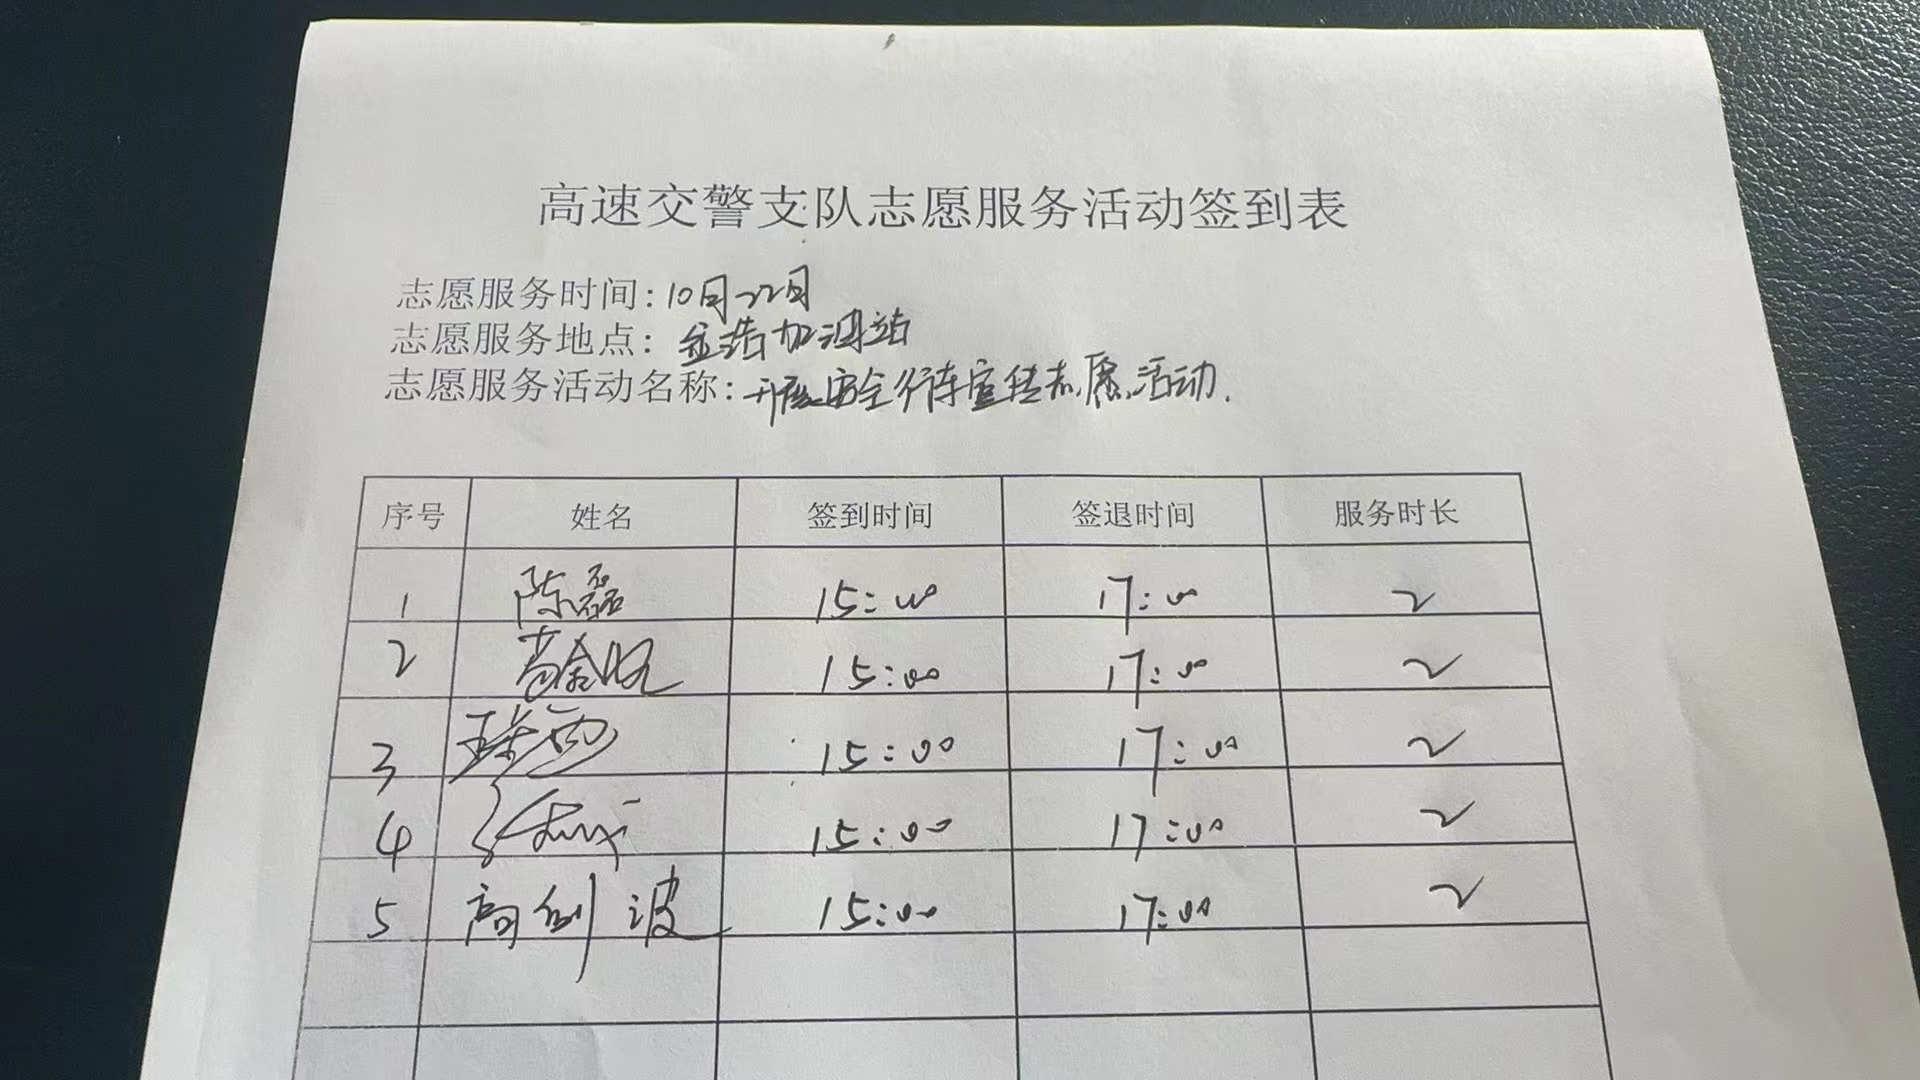 高速交警支队志愿服务活动签到表
志愿服务时间：10月22日
志愿服务地点：金浩加油站
志愿服务活动名称：开展安全行车宣传志愿活动.
序号 姓名 签到时间 签退时间 服务时长
1 陈磊 15:00 17:00 2
2 15:00 17:00 2
3 15:00 17:00 2
4 15:00 17:00 2
5 高剑波 15:00 17:00 2